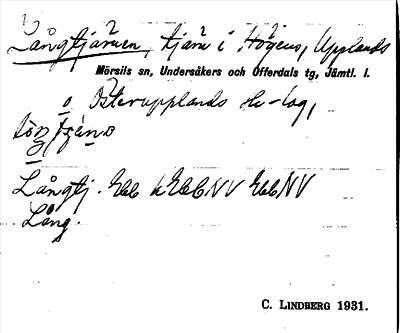 Långtjärnen, tjärn i Högens, Upplands
Mörsils sn, Undersåkers och Offerdals tg, Jämtl. l.
o Österupplands
Långtj. Ebb k EbbNV EbbNV
Lång.
C. LINDBERG 1931.